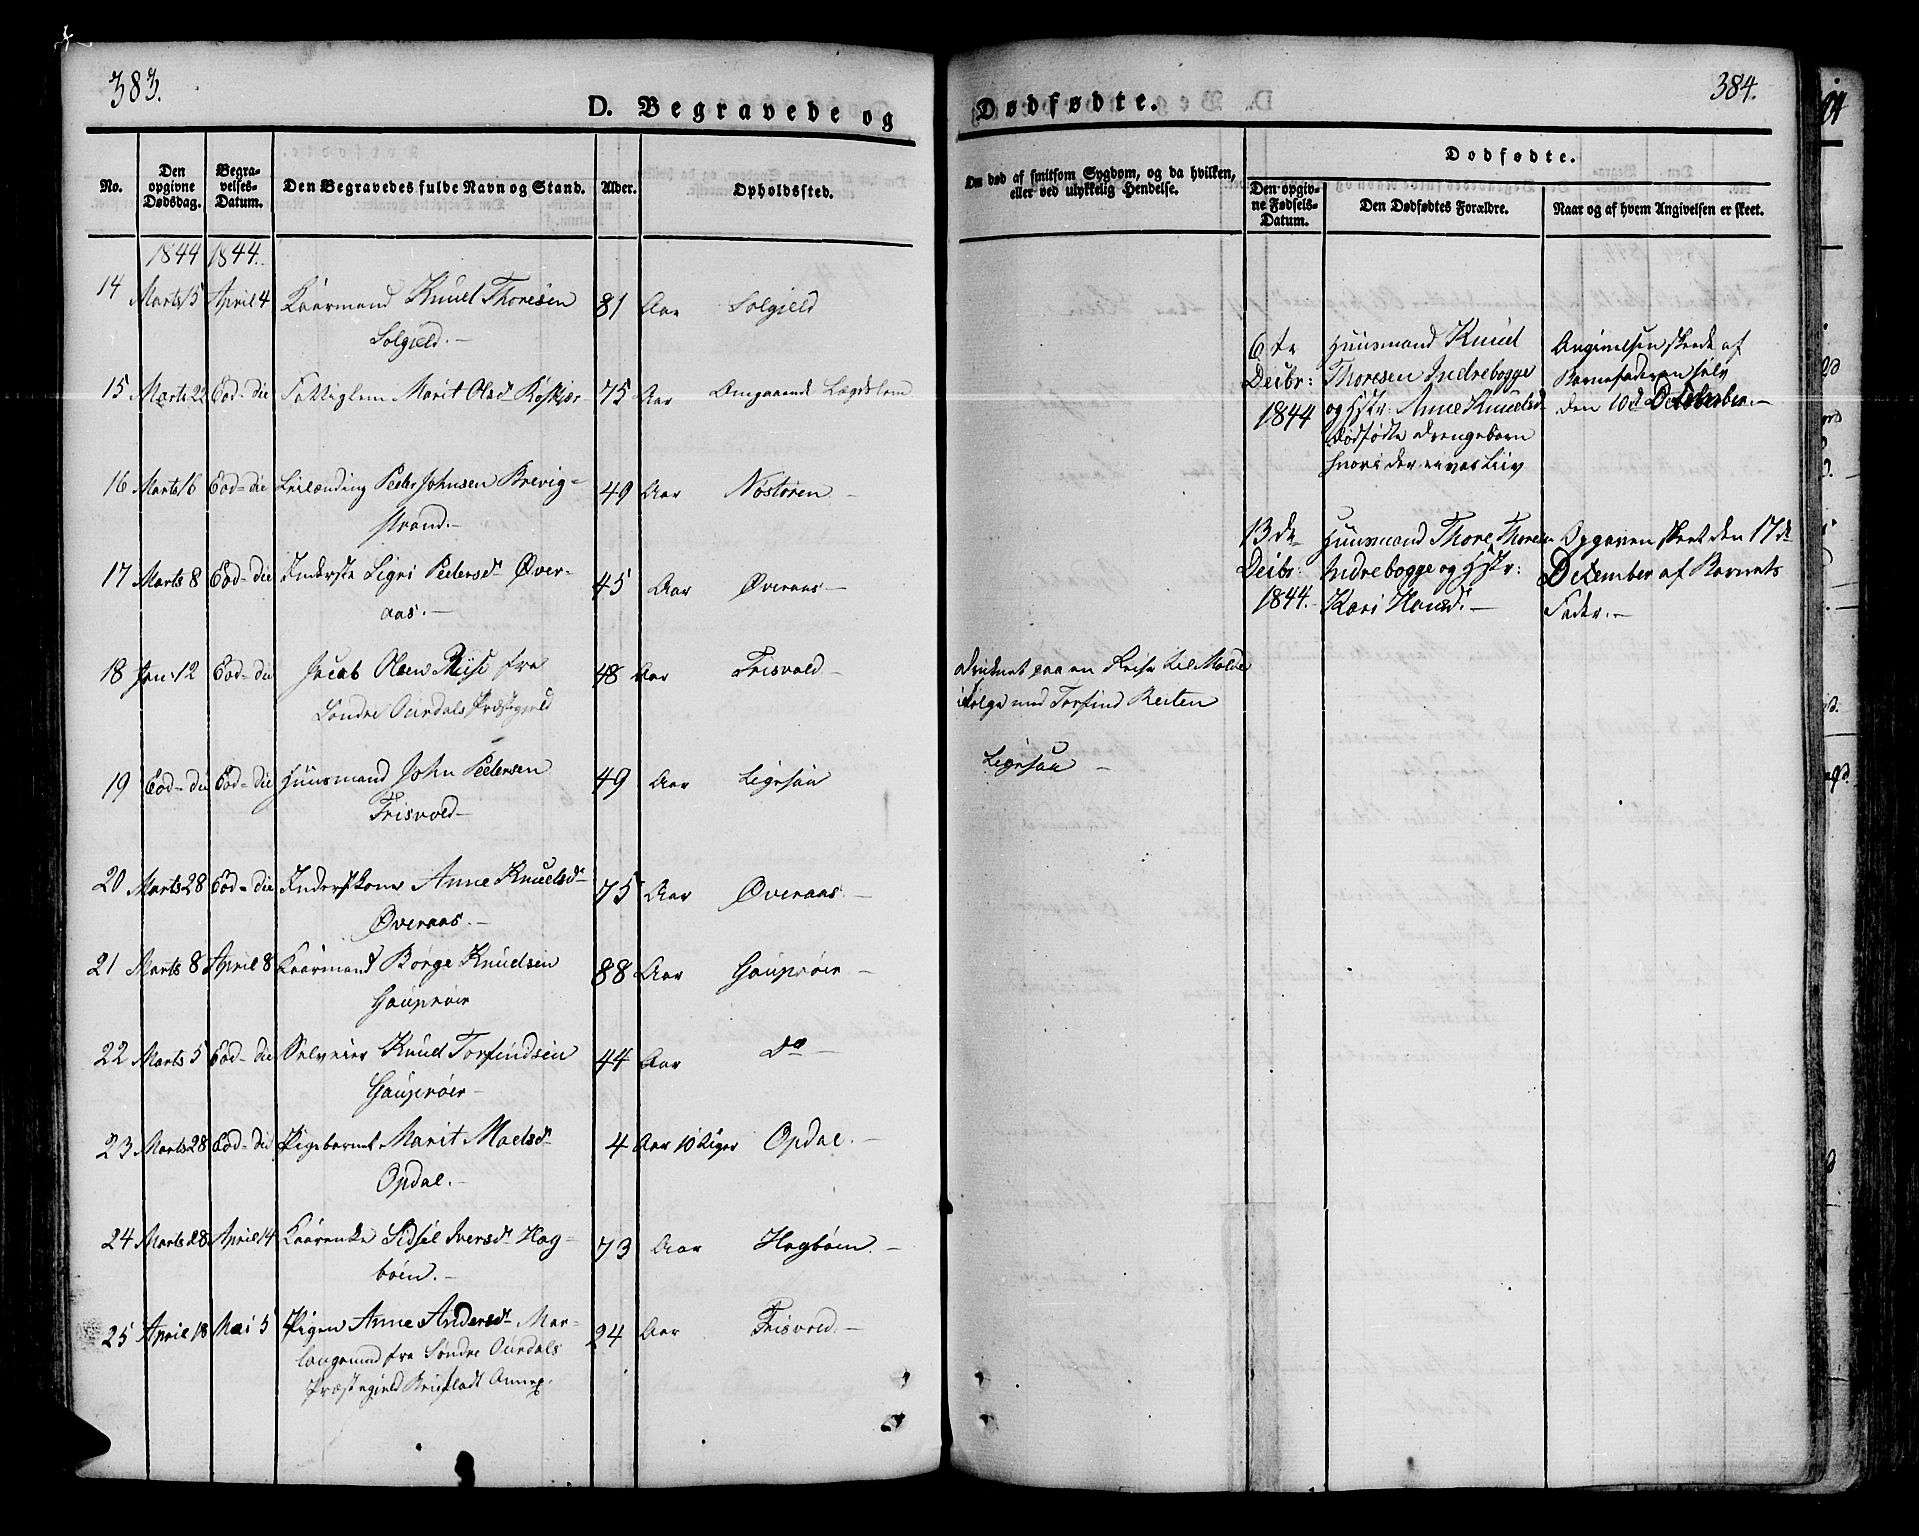 383.
D. Begravede og
No.
Den opgivne Dødsdag.
Begravelses-Datum.
Den Begravedes fulde Navn og Stand.
Alder.
Opholdssted.
1844 1844.
14 Marts 15 April 4 Kaarmand Knud Thoresen 81 Aar Solgjeld
Solgjeld.-
15 Marts 22 Eod-die Fattiglem Marit Olsd 75 Aar Omgaaende Lægdslem
16 Marts 16 Eod-die Leilænding Peder Johnsen Brevig- 49 Aar Nostøren -
strand.-
17 Marts 8 Eod-die Inderste Sigri Pedersd. Øver- 45 Aar Øveraas -
aas.-
18 Jan. 12 Eod-die Jacob Olsen Riise fra 48 Aar Trisvold -
Søndre Ourdals Præstegjeld
19 Eod-die Eod-die Huusmand John Pedersen 49 Aar Ligesaa
Trisvold-
20 Marts 28 Eod-die Inderstkone Anne Knudsd. 75 Aar Øveraas.-
Øveraas.-
21 Marts 8 April 8 Kaarmand Børge Knudsen 88 Aar Gauprøer -
Gauprøer
22 Marts 5 Eod-die Selveier Knud Torfindsen 44 Aar Do -
Gauprøer-
23 Marts 28 Eod-die Pigebarnet Marit Madsd. 4 Aar 10 Uger Opdal.-
Opdal.-
24 Marts 28 April 14 Kaarenke Sidsel Iversd. Hag- 73 Aar Hagbøen.-
bøen.-
25 April 18 Mai 5 Pigen Anne Andersd. 24 Aar Trisvold.-
fra Søndre Ourdals
Præstegjeld
384.
Dødfødte.
Om død af smitsom Sygdom, og da hvilken, eller ved ulykkelig Hendelse.
Dødfødte.
Den opgivne Fødsels-Datum.
Den Dødfødtes Forældre.
Naar og af hvem Angivelsen er skeet.
6te Huusmand Knud Angivelsen skeede af
Decbr: Thoresen Indrebogge Barnefaderen selv
1844 og Hstr: Anne Knudsd. den 10de December.-
dødfødte Drengebarn
hvori der ei var Liv
13de Huusmand Thore Thoresen Opgaven skeet den 17de
Decbr: Indrebogge og Hstr: December af Barnets
1844.- Kari Hansd.- Fader.-
druknet paa en Reise til Molde
i Følge med Torfind Reiten
Ligesaa -